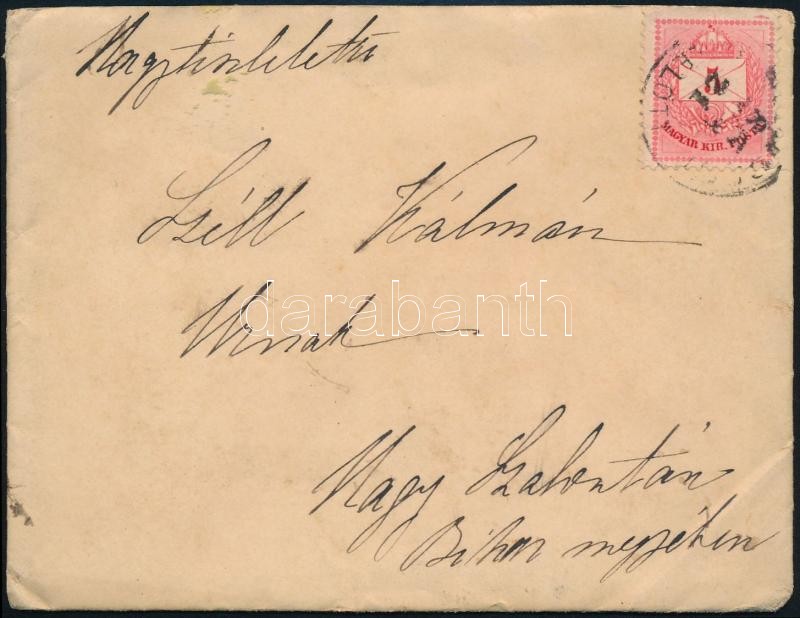 Nagytiszteletű
5
MAGYAR KIR. POSTA
Széll Kálmán
Urnak
darabanth
Nagy Szalontán
Bihar megyében